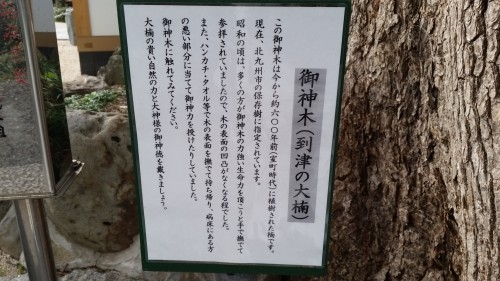 御神木(到津の大楠)
この御神木は今から約六〇〇年前(室町時代)に植樹された楠です。
現在、北九州市の保存樹に指定されています。
昭和の頃は、多くの方が御神木の力強い生命力を頂こうと手で撫でて
参拝されていましたので、木の表面の凹凸がなくなる程でした。
また、ハンカチ・タオル等で木の表面を撫でて持ち帰り、病床にある方
の悪い部分に当てて御神力を授けたりしていました。
御神木に触れてみてください。
大楠の青い自然の力と大神様の御神徳を戴きましょう。